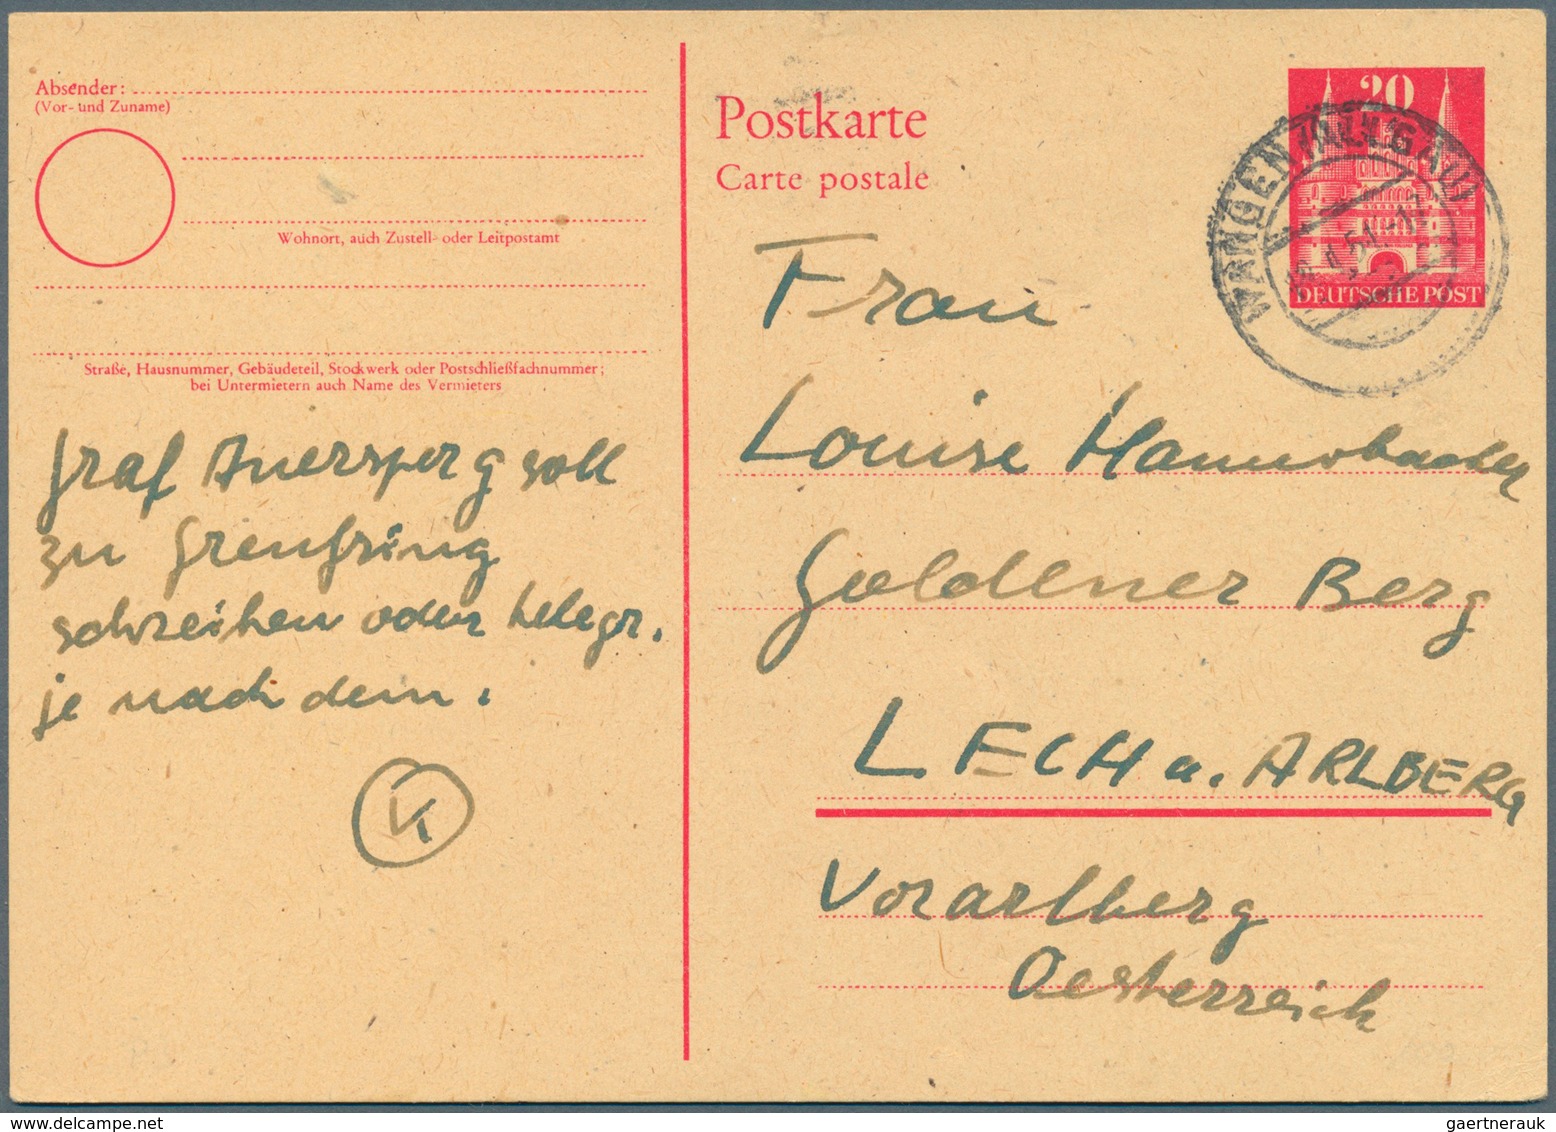 Absender:
(Vor- und Zuname)
Wohnort, auch Zustell- oder Leitpostamt
Straße, Hausnummer, Gebäudeteil, Stockwerk oder Postschließfachnummer;
bei Untermietern auch Name des Vermieters
Graf Auersperg soll
zu
schreiben oder telegr.
je nach dem.
K
Postkarte
Carte postale
20
DEUTSCHE POST
WANGEN (ALLGÄU)
51.-17
Frau
Louise
Goldener Berg
LECH a. ARLBERG
Vorarlberg
Oesterreich
gaertnerauk